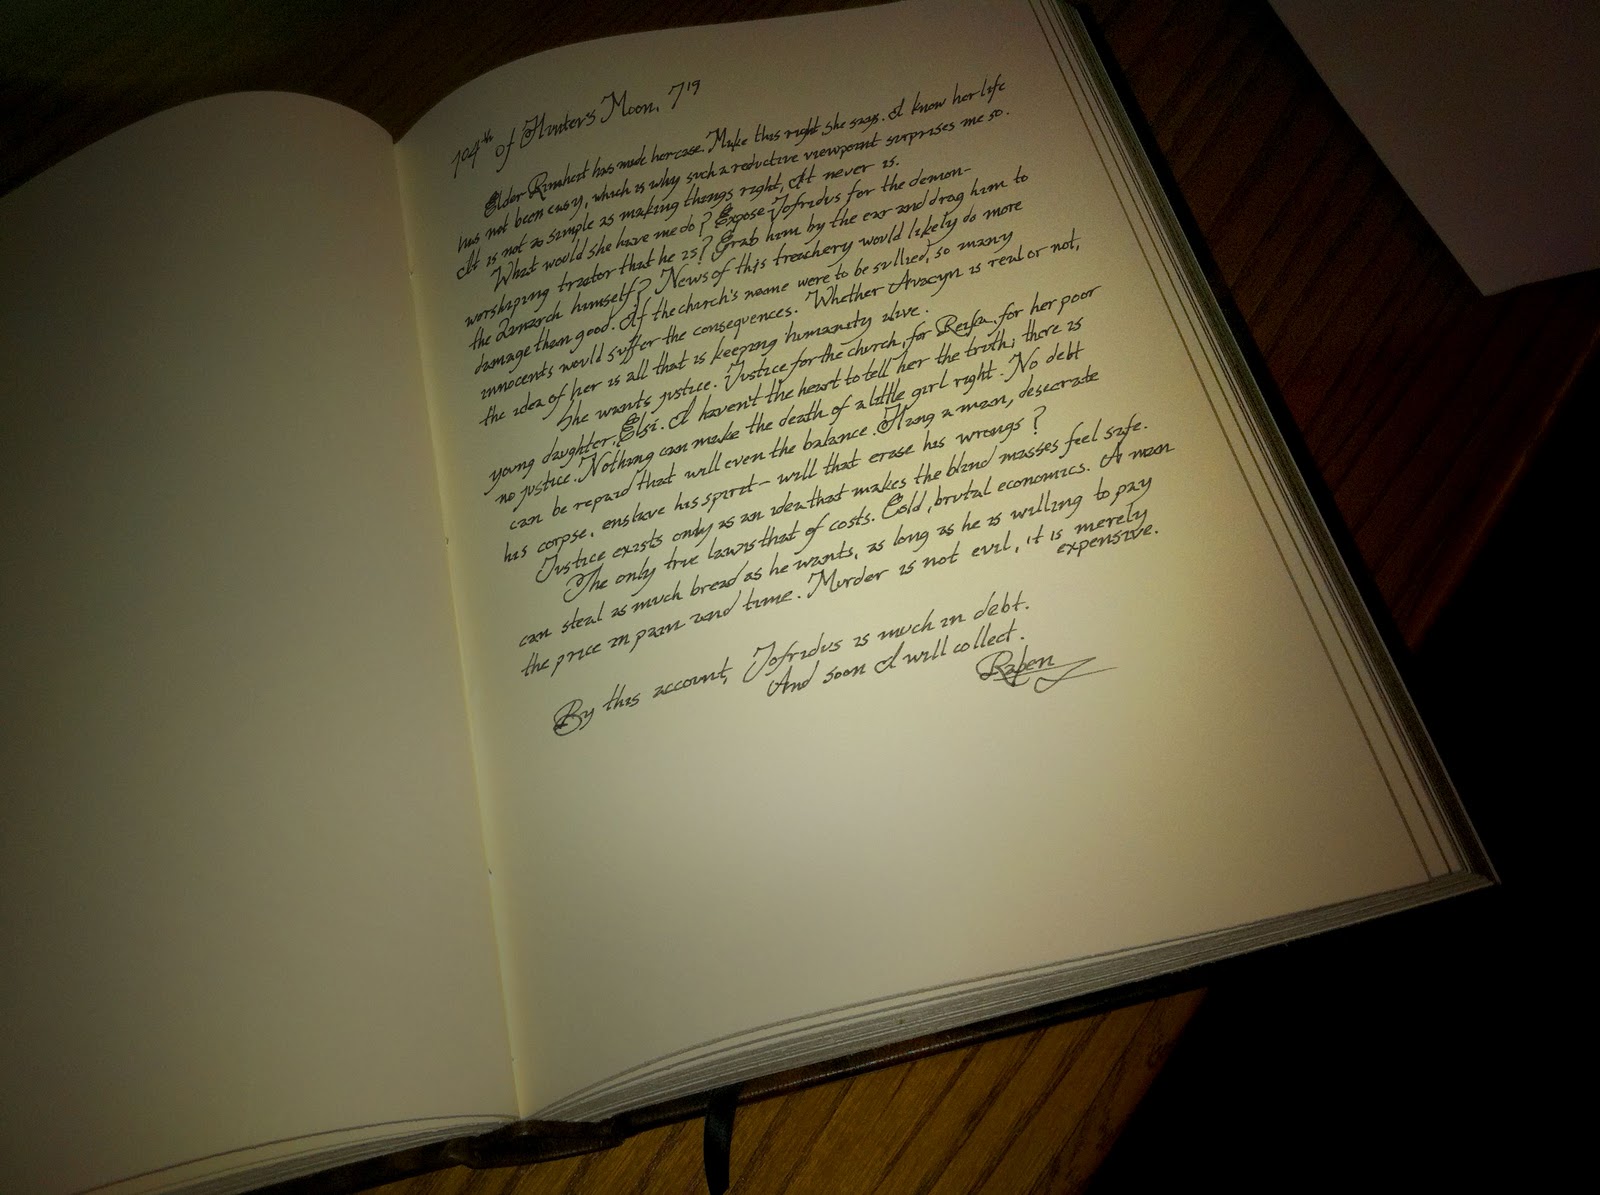 104th of Hunter's Moon, 719
Elder Rimheit has made her case. Make this right she says. I know her life
has not been easy, which is why such a reductive viewpoint surprises me so.
It is not as simple as making things right, it never is.
What would she have me do? Expose Jofridus for the demon-
worshiping traitor that he is? Grab him by the ear and drag him to
the Lunarch himself? News of this treachery would likely do more
damage than good. If the church's name were to be sullied, so many
innocents would suffer the consequences. Whether Avacyn is real or not,
the idea of her is all that is keeping humanity alive.
She wants justice. Justice for the church, for Reisa, for her poor
young daughter, Elsi. I haven't the heart to tell her the truth; there is
no justice. Nothing can make the death of a little girl right. No debt
can be repaid that will even the balance. Hang a man, desecrate
his corpse, enslave his spirit - will that erase his wrongs?
Justice exists only as an idea that makes the blind masses feel safe.
The only true law is that of costs. Cold, brutal economics. A man
can steal as much bread as he wants, as long as he is willing to pay
the price in pain and time. Murder is not evil, it is merely
expensive.
By this account, Jofridus is much in debt.
And soon I will collect.
Raben